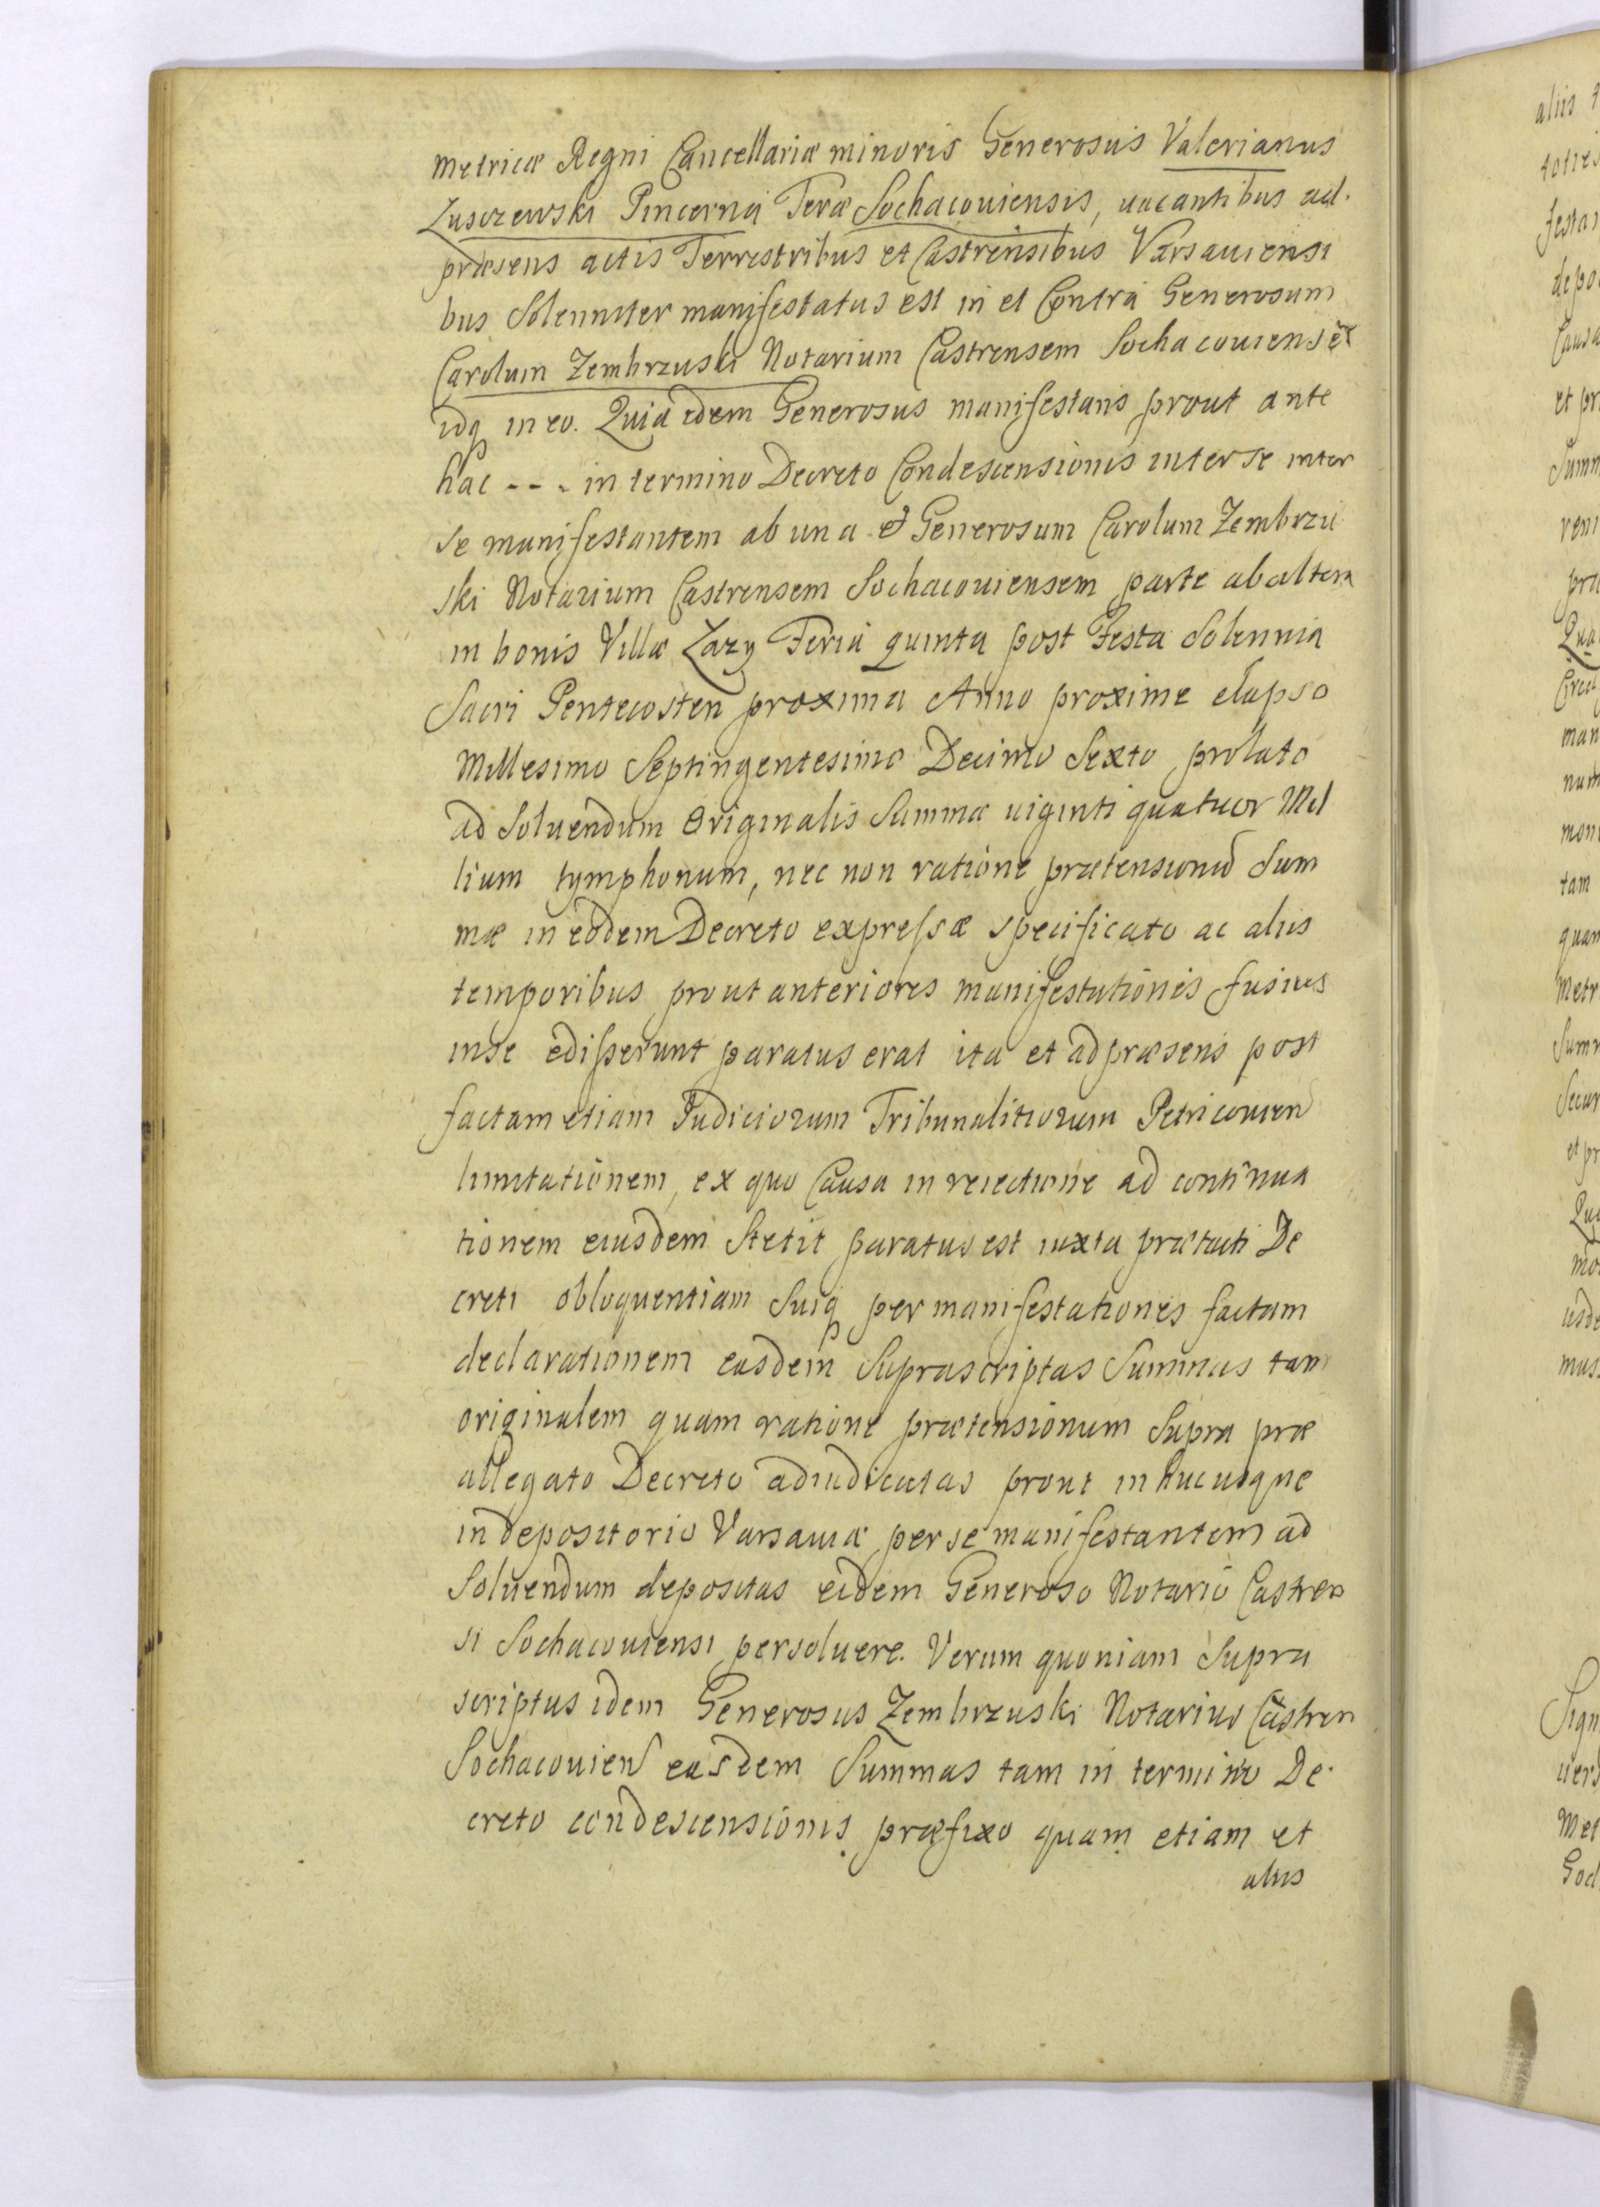 Metricæ Regni Cancellariæ minoris Generosus Valerianus
Łuszczewski Pincerna Teræ Sochacouiensis, uacantibus ad
præsens actis Terrestribus et Castrensibus Varsauiensi
bus Solenniter manifestatus est in et Contra Generosum
Carolum Zembrzuski Notarium Castrensem Sochacouiensem
idq in eo. Quia idem Generosus manifestans prout ante
hac - - - in termino Decreto Condescensionis inter se inter
se manifestantem ab una et Generosum Carolum Zembrzu
ski Notarium Castrensem Sochacouiensem parte ab altera
in bonis Villæ Łazy Feria quinta post Festa Solennia
Sacri Pentecosten proxima Anno proxime elapso
Millesimo Septingentesimo Decimo Sexto prolato
ad Soluendum Originalis Summæ uiginti quatuor Mil
lium tymphonum, nec non ratione prætensionũ Sum
mæ in eodem Decreto expressæ specificato ac aliis
temporibus prout anteriores manifestationes fusius
inse edisserunt paratus erat ita et ad præsens post
factam etiam Judiciorum Tribunalitiorum Petricouien
limitationem, ex quo Causa in reiectione ad continua
tionem eiusdem Stetit paratus est iuxta prætacti De
creti obloquentiam Suiq per manifestationes factam
declarationem easdem Suprascriptas Summas tam
originalem quam ratione prætensionum Supra præ
allegato Decreto adiudicatas prout in hucusque
in depositorio Varsauiæ per se manifestantem ad
Soluendum depositas eidem Generoso Notario Castren
si Sochacouiensi persoluere. Verum quoniam Supra
scriptus idem Generosus Zembrzuski Notarius Castren
Sochacouien easdem Summas tam in termino De
creto condescensionis præfixo quam etiam et
aliis